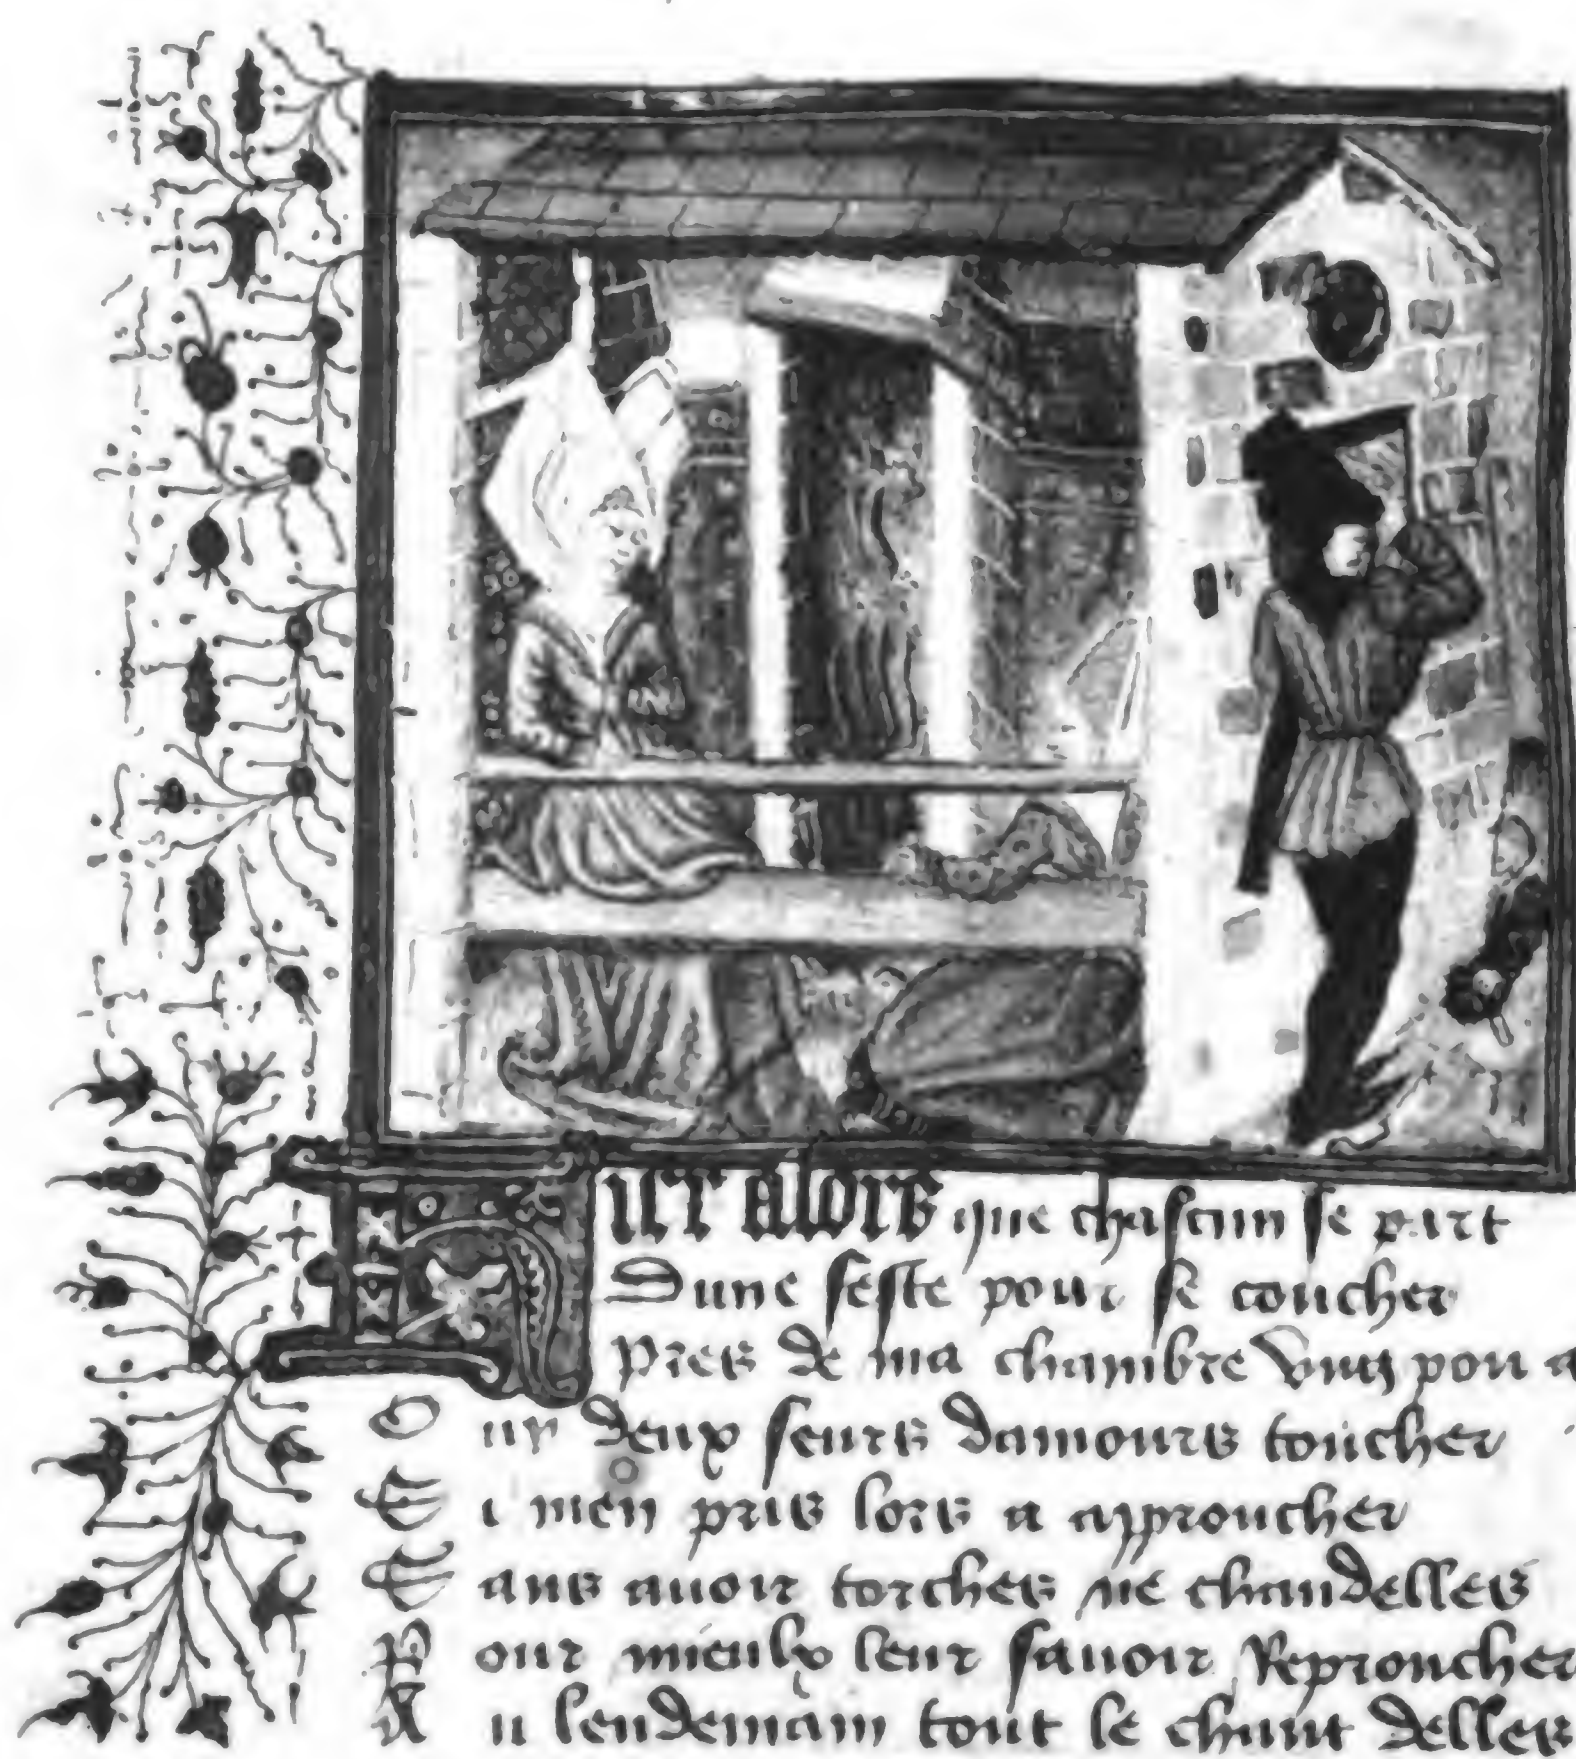 Hier alors que chascun se part
Dune feste pour se coucher
Pres de ma chambre vng pou a
Ouy deux seurs damours toucher
Si men pris lors a approucher
Sans auoir torches ne chandelles
Pour mieulx leur sauoir Reproucher
Au lendemain tout le chant delles